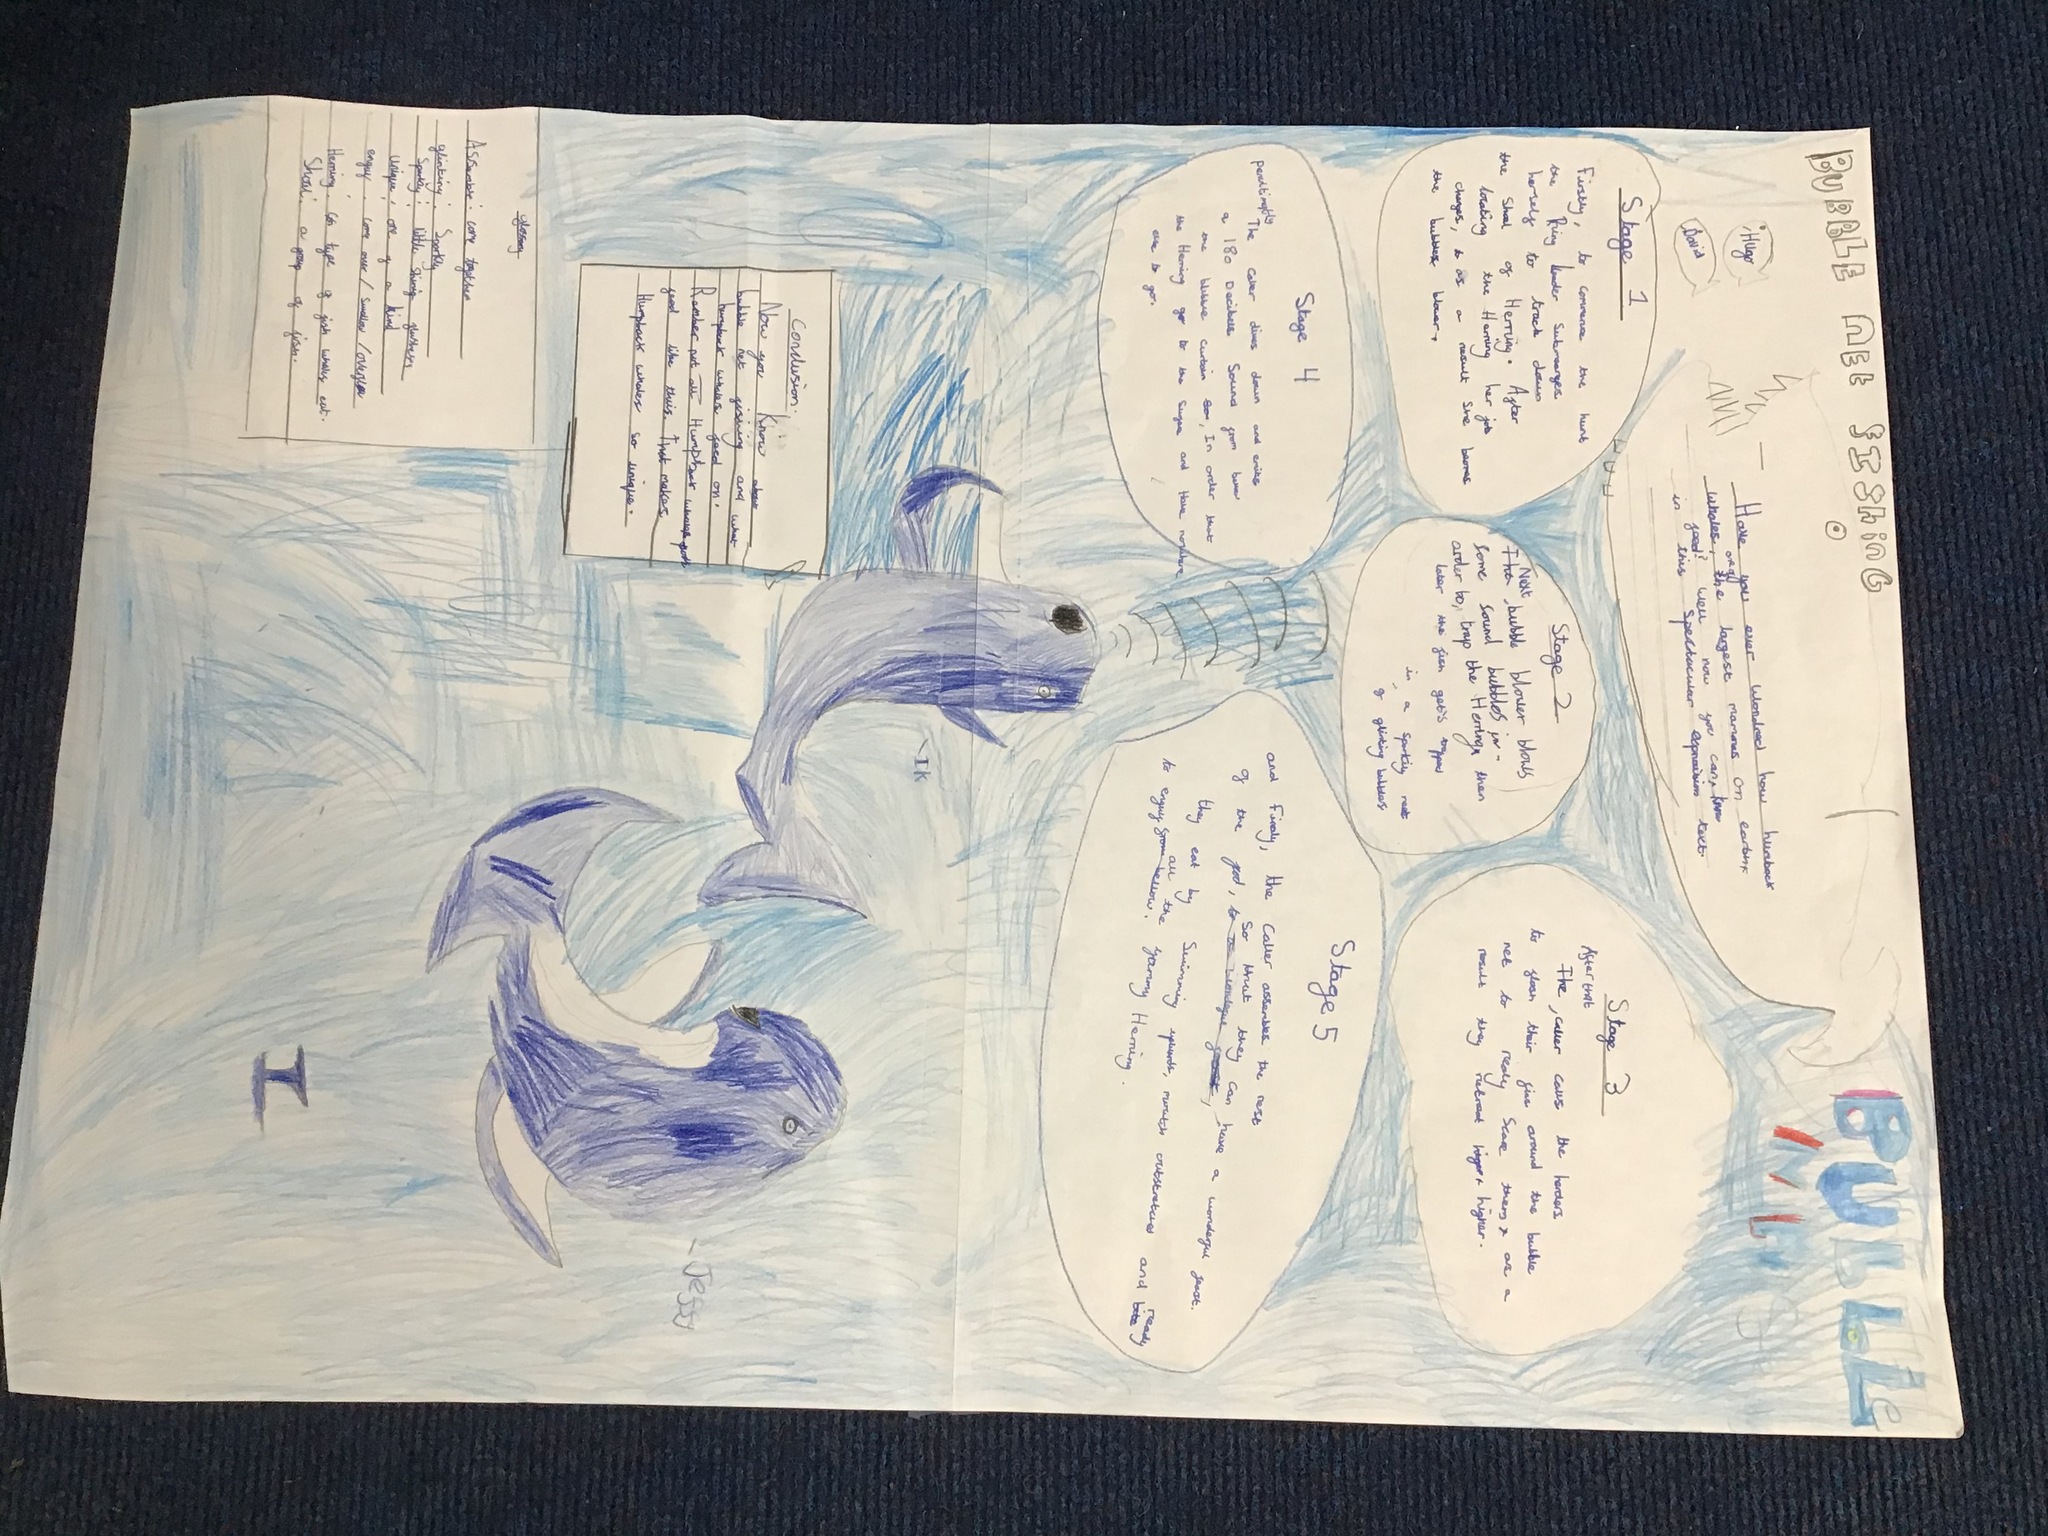 BUBBLE NEE FISHING
BUBLLe
Hugo
David
Have you ever wondred how humback
whales, or of the largest mammas on earth,
feed? Well now you can, know
in this Spectacular explanation text.
Stage 1
Firstly, to commence the hunt
the Ring leader submerges
herself to track down
the Shoal of Herring. After
locating the Herring her job
changes, to as a result she becomes
the bubble blower.
Stage 2
Next
Then, bubble blower blows
some sound bubbles in
order to, trap the Herring, then
later the fish get's trapped
in a sparkly net
of glinting bubbles
Stage 3
After that
The, caller calls the herders
to flash their fins around the bubble
net to really Scare them, as a
result they retreat higher, higher.
Stage 4
The caller dives down and emits
a 180 Decibell Sound from below
the bubble curtain, In order that
the Herring go to the surface and Have nowhere
else to go.
Stage 5
and Finaly, the Caller assembles the rest
of the pod, So that they can, have a wonderful feast.
they eat by Swimming upwards, mouth outstretched and ready
to engulf all the yummy Herring.
Conclusion:
Now you Know about
bubble net fishing and what
humpback whales feed on.
Rember not all Humpback whales
feed like this That makes
Humpback whales so unique.
glossary
Assemble: come together
glinting: Sparkly
Sparkly: little shining glusters
Unique: one of a kind
engulf: come over / swallow /
Herring: a type of fish whales eat.
Shoal: a group of fish.
-IK
-Jessy
I